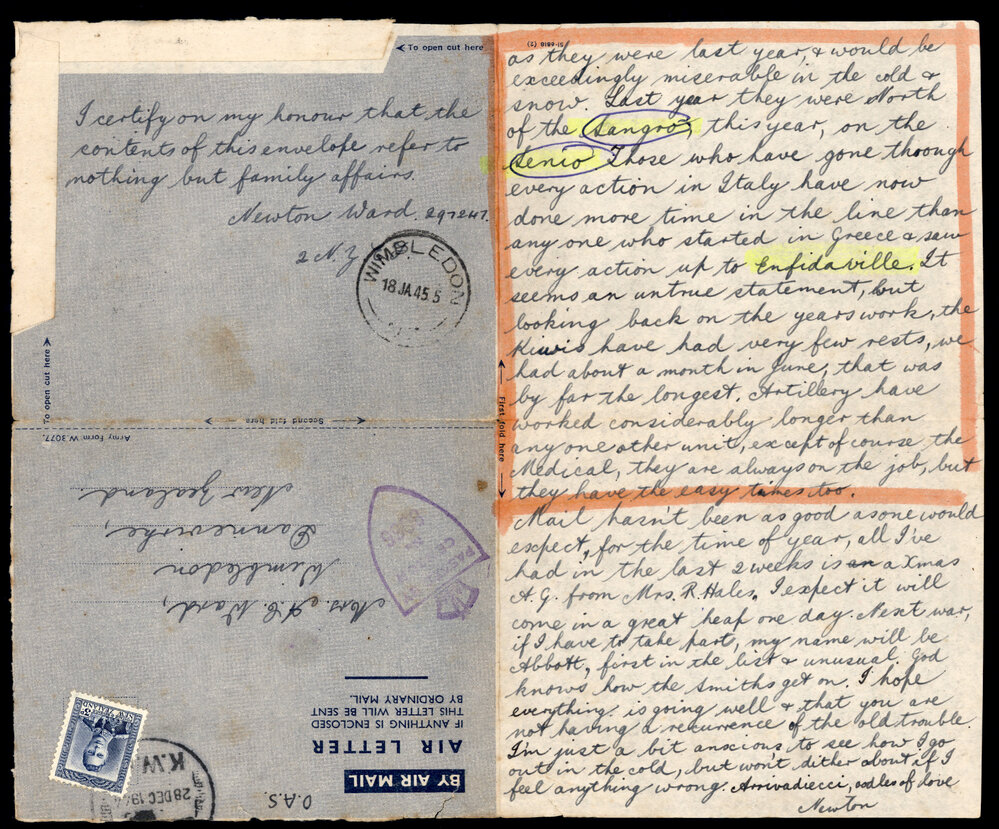 To open cut here
I certify on my honour that the
contents of this envelope refer to
nothing but family affairs.
Newton Ward. 297247.
2 N.Z
WIMBLEDON
18 JA 45.5
To open cut here
Second fold here
Army Form W 3077.
Mrs. A.C. Ward,
Wimbledon
Dannevirke,
New Zealand
BY AIR MAIL
AIR LETTER
IF ANYTHING IS ENCLOSED
THIS LETTER WILL BE SENT
BY ORDINARY MAIL
O.A.S.
NEW ZEALAND
K.W
28 DEC 194
First fold here
51-6818 (2)
as they were last year, & would be
exceedingly miserable in the cold &
snow. Last year they were North
of the Sangro, this year, on the
Senio Those who have gone through
every action in Italy have now
done more time in the line than
any one who started in Greece & saw
every action up to Enfidaville. It
seems an untrue statement, but
looking back on the years work, the
Kiwis have had very few rests, we
had about a month in June, that was
by far the longest. Artillery have
worked considerably longer than
any one other unit, except of course, the
Medical, they are always on the job, but
they have the easy times too.
Mail hasn't been as good as one would
expect, for the time of year, all I've
had in the last 2 weeks is an a Xmas
A.G. from Mrs. R. Hales. I expect it will
come in a great heap one day. Next war,
if I have to take part, my name will be
Abbott, first in the list & unusual. God
knows how the Smiths get on. I hope
everything is going well & that you are
not having a recurrence of the old trouble.
I'm just a bit anxious to see how I go
out in the cold, but won't dither about if I
feel anything wrong. Arrivadiecci, oodles of love
Newton